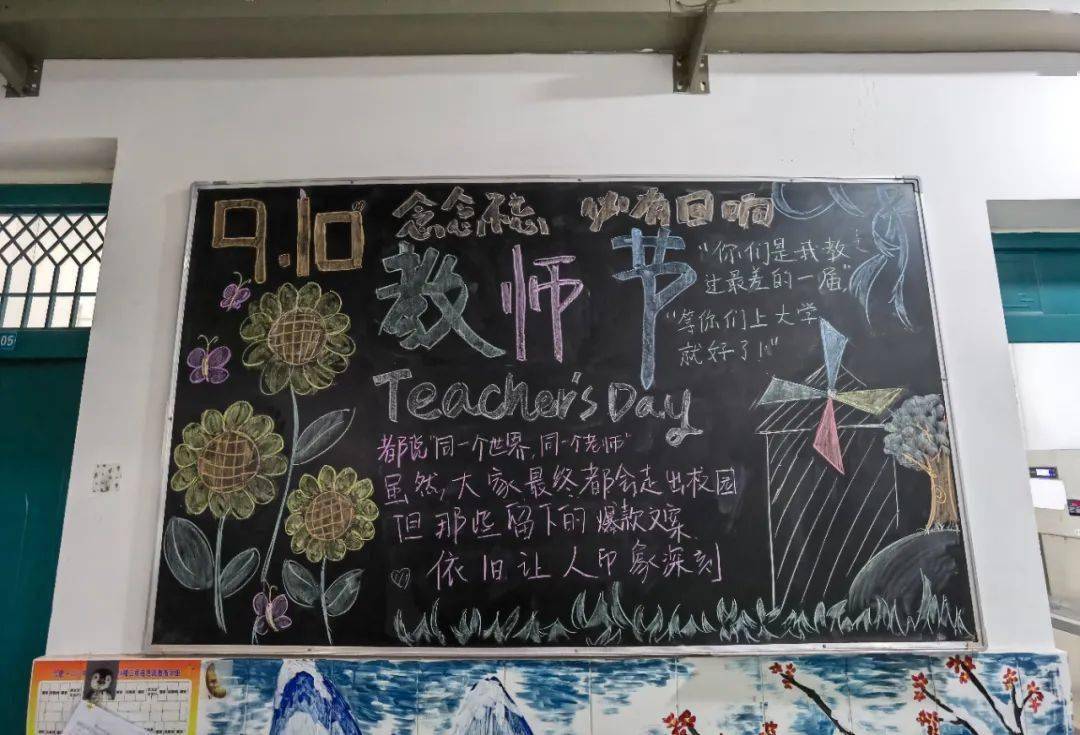 9.10
念念不忘 必有回响
教师节
"你们是我教
过最差的一届"
"等你们上大学
就好了!"
Teacher's Day
都说"同一个世界,同一个老师"
虽然,大家最终都会走出校园
但那些留下的爆款文案
依旧让人印象深刻
05